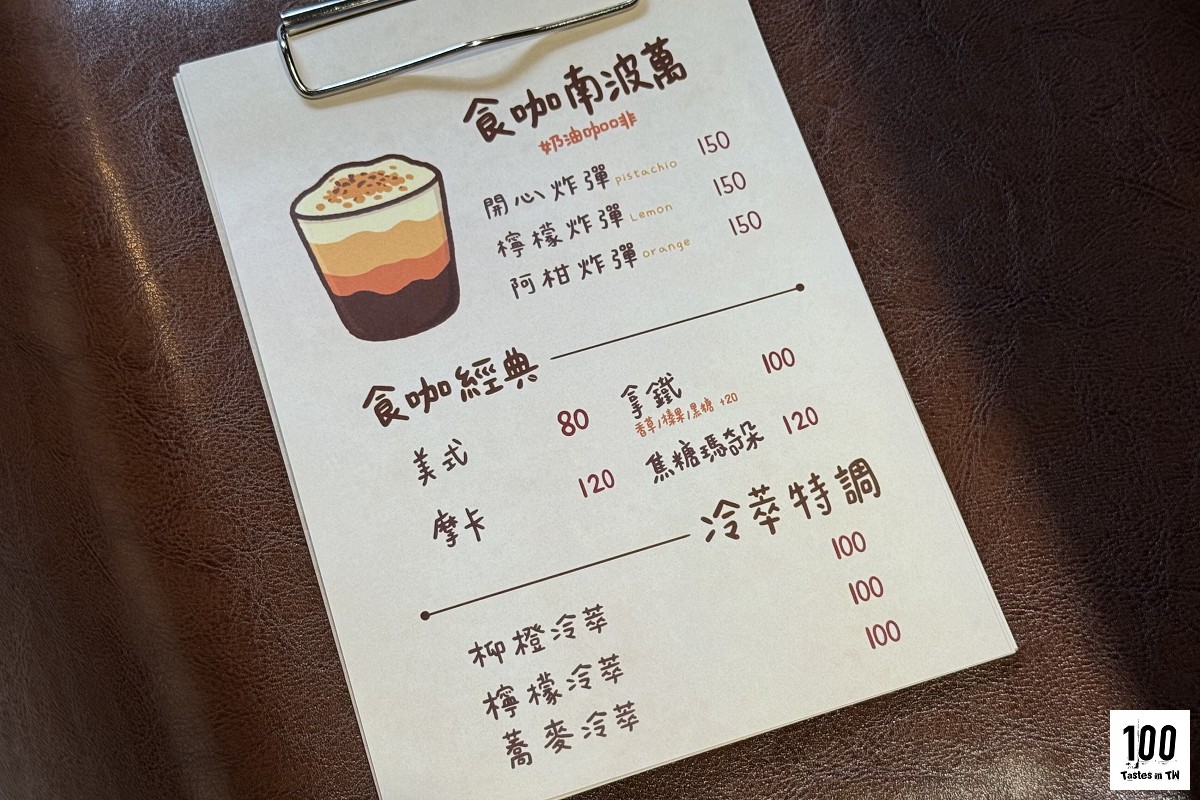 食咖南波萬
#奶油咖oo啡
開心炸彈 pistachio 150
檸檬炸彈 Lemon 150
阿柑炸彈 orange 150
食咖經典
美式 80
拿鐵 100
香草/榛果/黑糖 +20
摩卡 120
焦糖瑪奇朵 120
冷萃特調
柳橙冷萃 100
檸檬冷萃 100
蕎麥冷萃 100
100
Tastes in TW